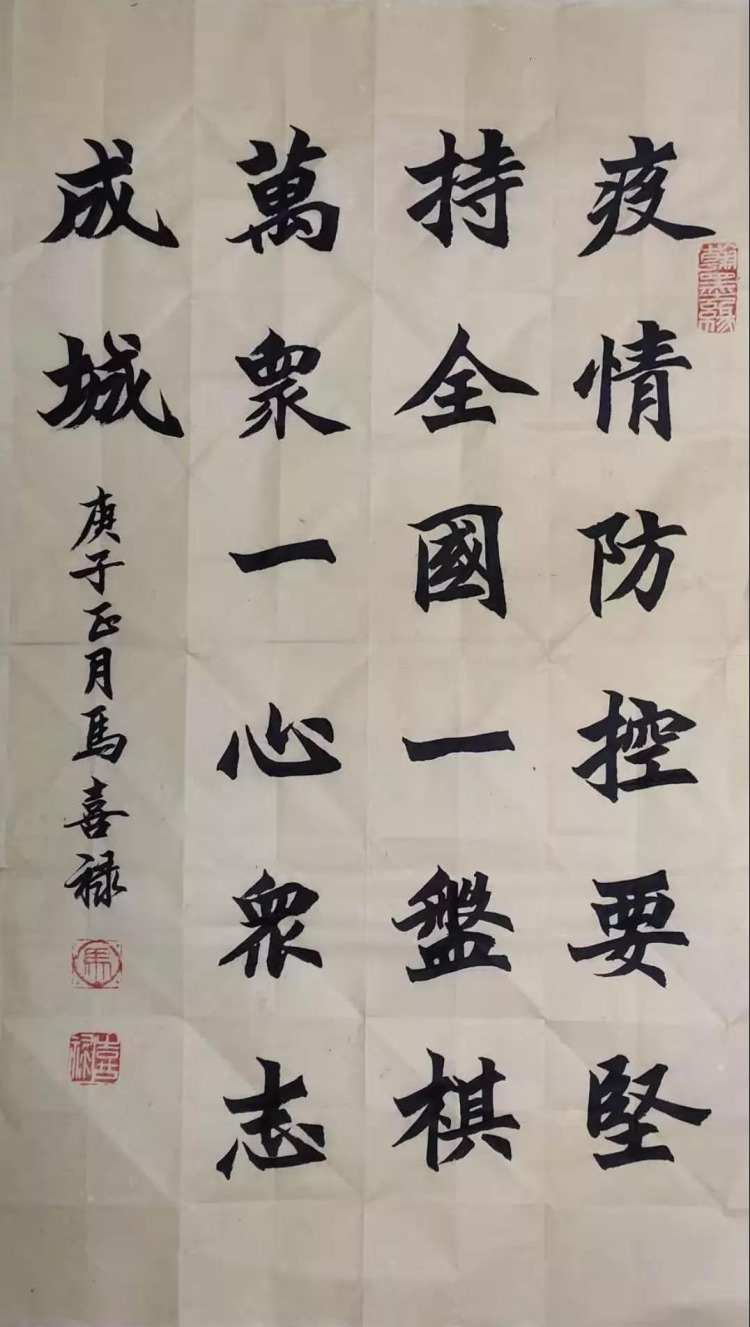 疫情防控要堅
持全國一盤棋
萬眾一心眾志
成城
庚子正月馬喜禄
馬
喜禄